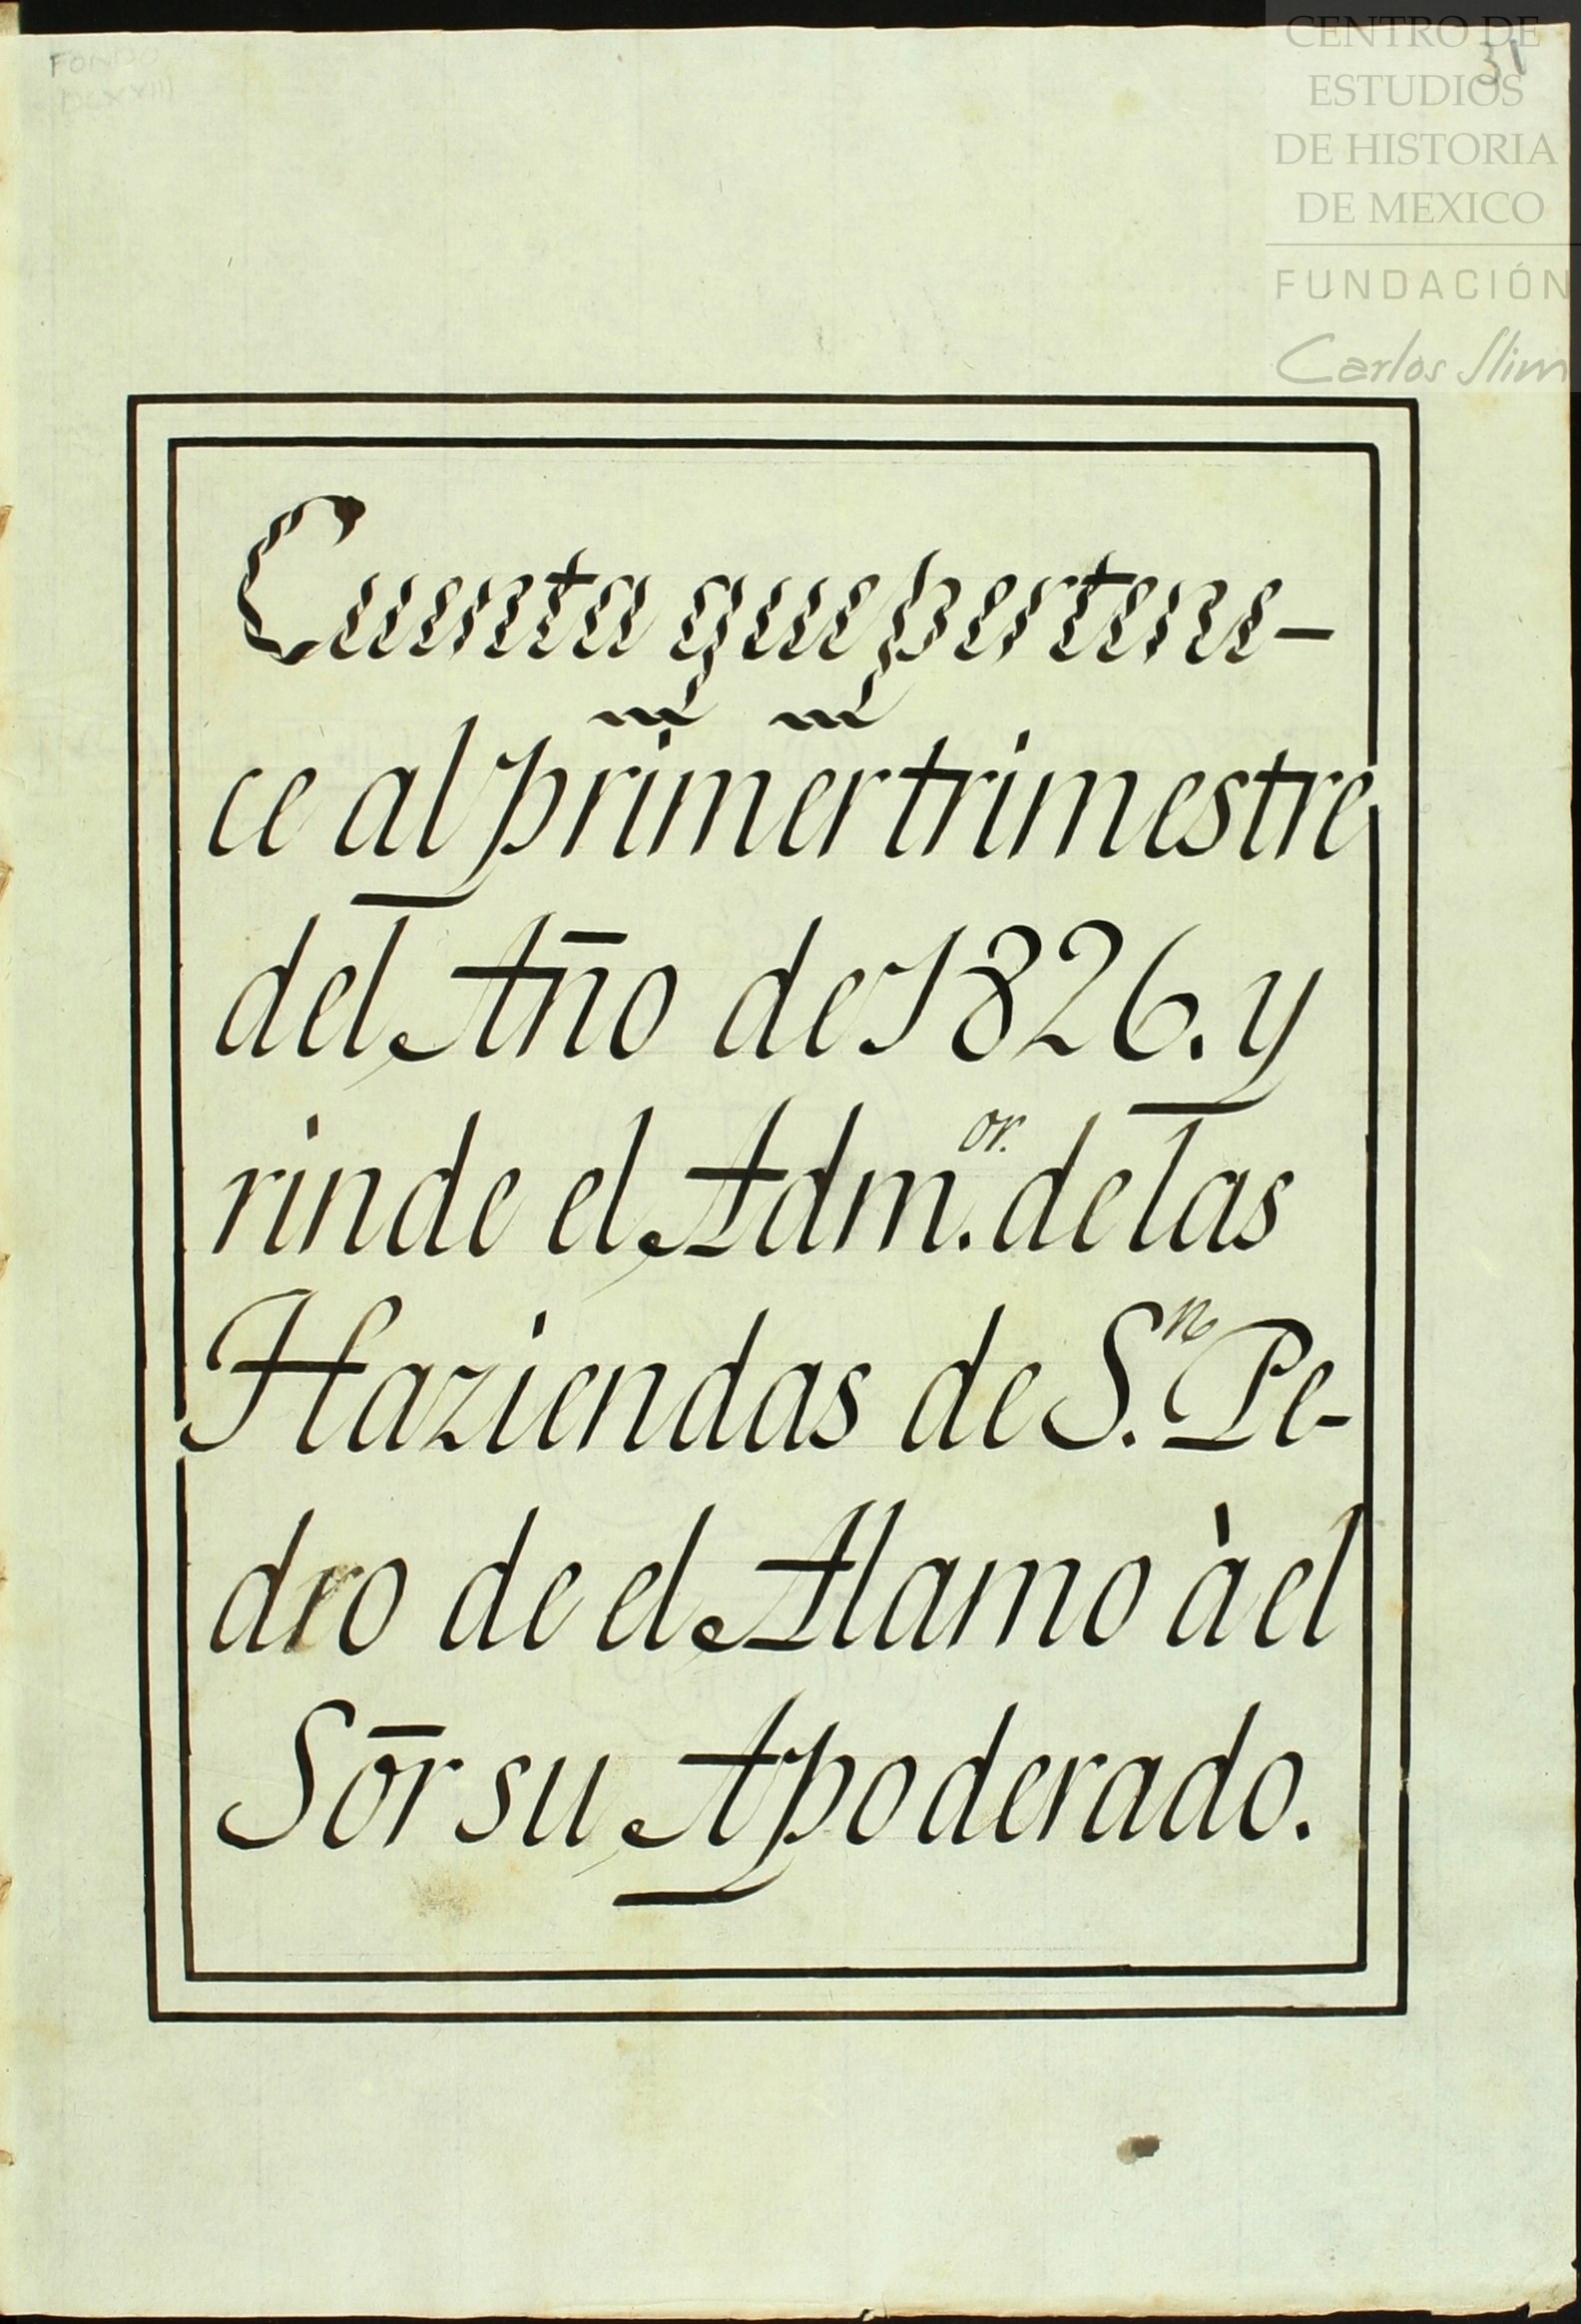 FONDO
DCXXVIII
31
CENTRO DE
ESTUDIOS
DE HISTORIA
DE MEXICO
FUNDACIÓN
Carlos Slim
Cuenta que pertene-
ce al primer trimestre
del Año de 1826. y
rinde el Adm.or. de las
Haziendas de S.n Pe-
dro de el Alamo à el
Sōr su Apoderado.